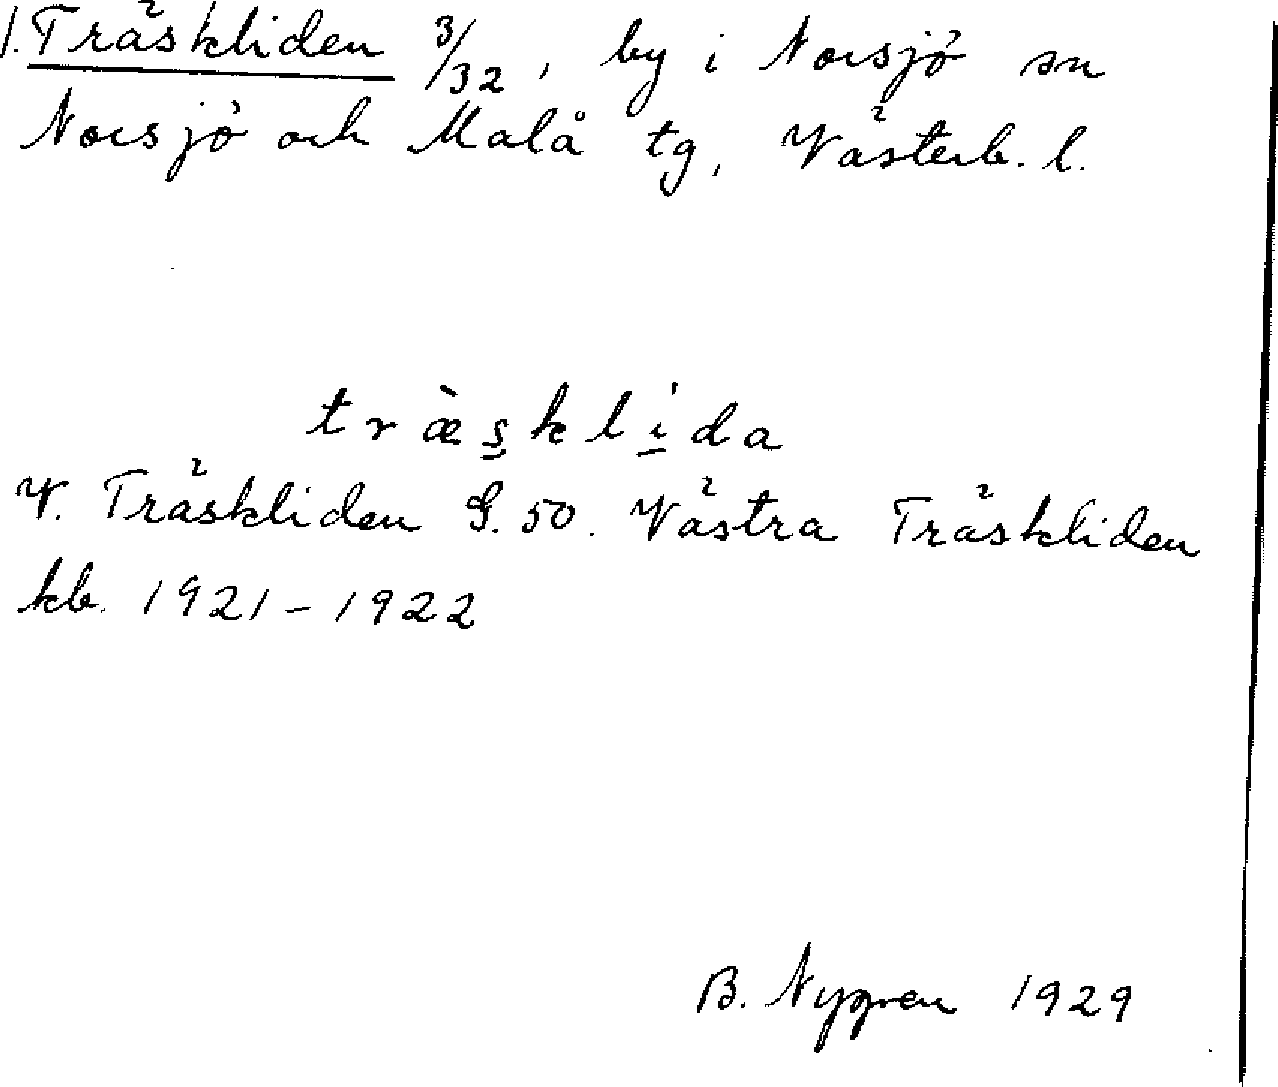 1. Träskliden 3/32, by i Norsjö sn
Norsjö och Malå tg, Västerb. l.
træ̀sklị́da
V. Träskliden G. 50. Västra Träskliden
kb. 1921-1922
B. Nygren 1929